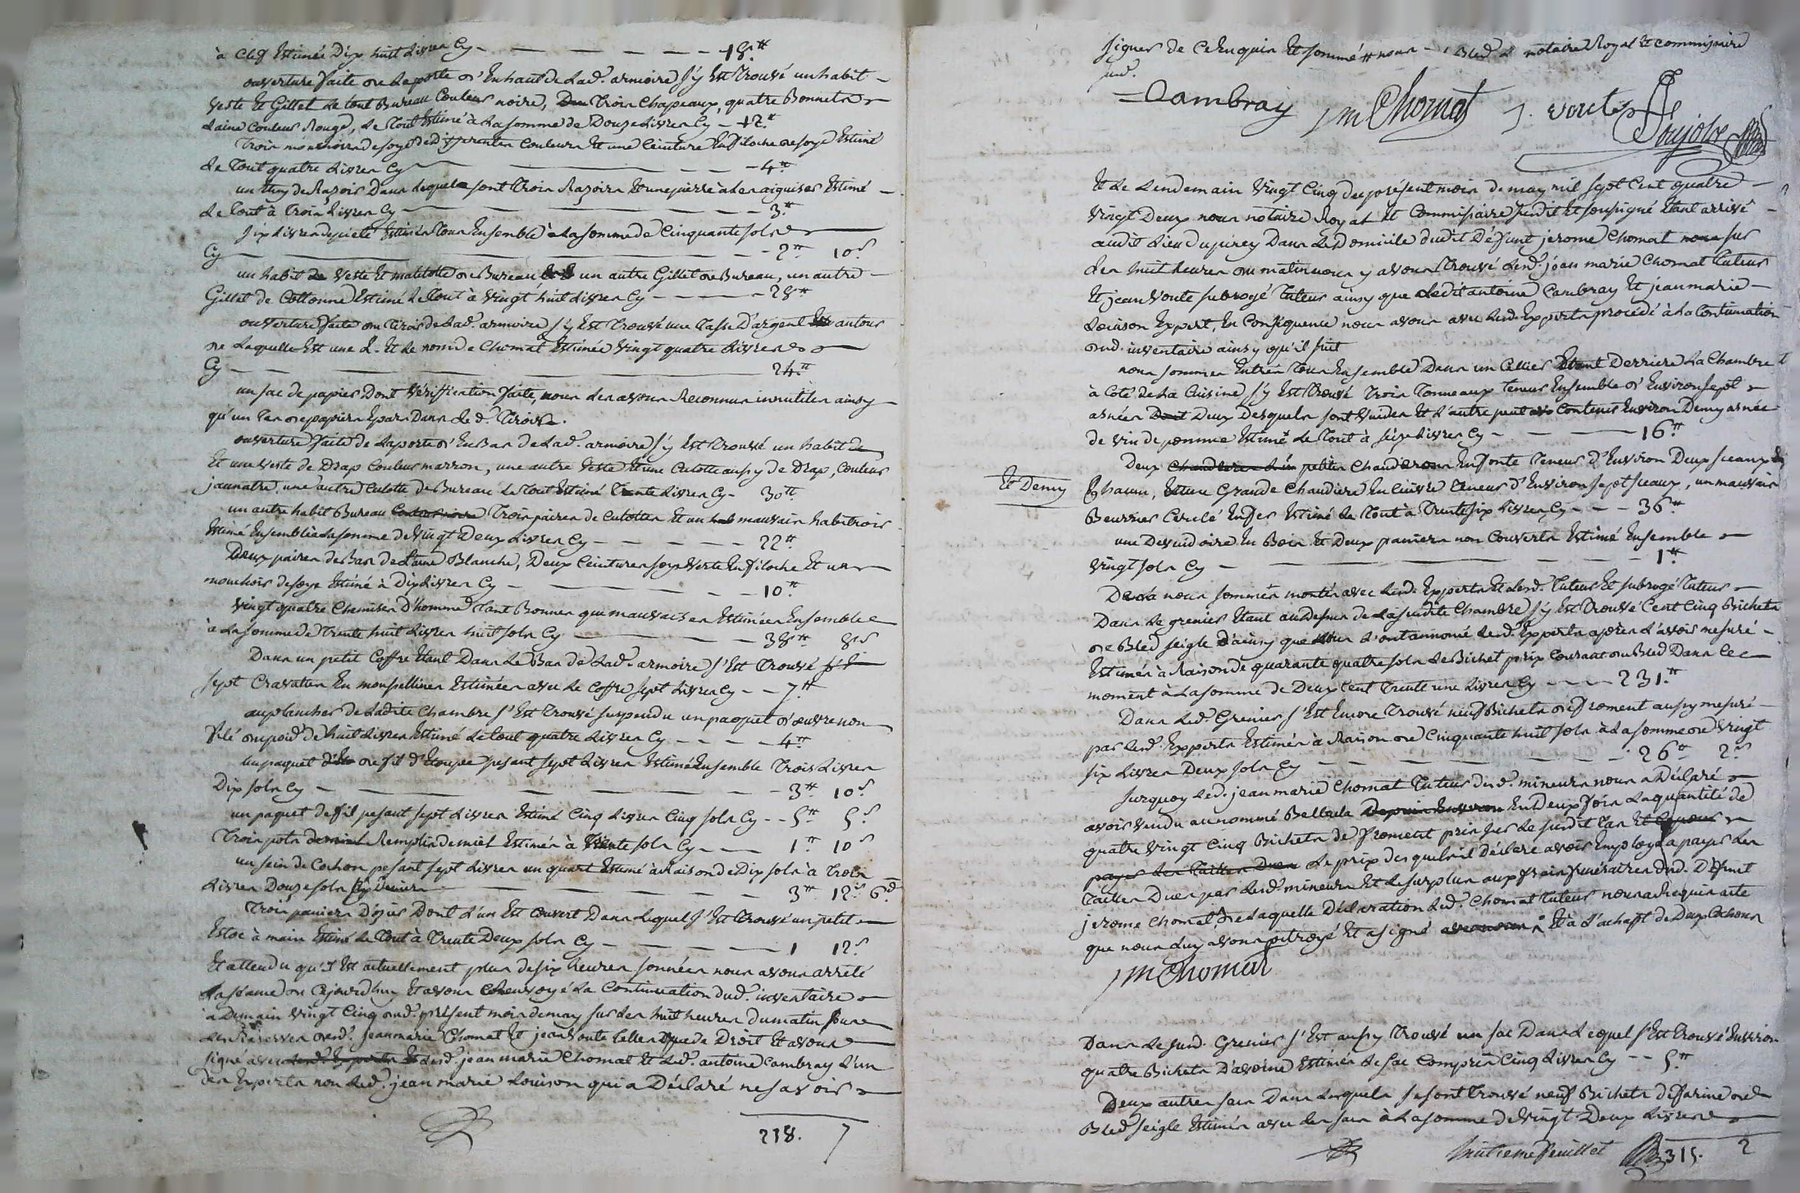 à Clef Estimé Dix huit Livres Cy 18.tt
ouverture faite de la porte d'En haut de Lad. armoire s'y Est Trouvé un habit
veste Et Gillet Le tout Bureau Couleur noire, Trois Chapeaux, quatre Bonnets
Laine Couleur Rouge, Le Tout Estimé à La somme de Douze Livres Cy 12.tt
Trois mouchoirs de soye de differentes Couleurs Et une Ceinture En filoche de soye Estimé
Le Tout quatre Livres Cy 4.tt
un Etuy de Razoir Dans Lequel sont Trois Razoirs Et une pierre à Les aiguiser Estimé
Le Tout à Trois Livres Cy 3.tt
Six Livres Estimé Tout Ensemble à La somme de Cinquante sols
Cy 2.tt 10.s
un habit veste Et matelotte de Bureau un autre Gillet de Bureau, un autre
Gillet de Cottonne Estimé Le Tout à vingt huit Livres Cy 28.tt
ouverture faite du Tiroir de Lad. armoire s'y Est Trouvé une Tasse D'argent autour
de Laquelle Est une L. Et Le nom de Chomat Estimée vingt quatre Livres
Cy 24.tt
un sac de papiers Dont vériffication faite, nous Les avons Reconnus innutiles ainsy
qu'un Tas de papiers Epars Dans Led. Tiroir.
ouverture faite de La porte d'En Bas de Lad. armoire s'y Est Trouvé un habit
Et une veste de Drap Couleur marron, une autre veste Et une Culotte aussy de Drap, Couleur
jaunatre, une autre Culotte de Bureau Le Tout Estimé Trente Livres Cy 30.tt
un autre habit Bureau Trois paires de Culottes Et un mauvais habit noir
Estimé Ensemble La somme de vingt Deux Livres Cy 22.tt
Deux paires de Bas de Laine Blanche, Deux Ceintures soye verte En filoche Et un
mouchoir de soye Estimé à Dix Livres Cy 10.tt
vingt quatre Chemises D'homme Tant Bonnes que mauvaises Estimées Ensemble
à La somme de Trente huit Livres huit sols Cy 38.tt 8.s
Dans un petit Coffre Etant Dans Le Bas de Lad. armoire s'Est Trouvé
sept Cravates En mousselline Estimées avec Le Coffre sept Livres Cy 7.tt
au plancher de Ladite Chambre s'Est Trouvé suspendu un paquet d'œuvre non
filé du poid de huit Livres Estimé Le tout quatre Livres Cy 4.tt
un paquet de fil d'Etoupe pesant sept Livres Estimé Ensemble Trois Livres
Dix sols Cy 3.tt 10.s
un paquet de fil pesant sept Livres Estimé Cinq Livres Cinq sols Cy 5.tt 5.s
Trois pots Remplis de miel Estimés à Trente sols Cy 1.tt 10.s
un sein de Cochon pesant sept Livres un quart Estimé à Raison de Dix sols à Trois
Livres Douze sols six Deniers 3.tt 12.s 6.d
Trois paniers D'ozier Dont L'un Est Couvert Dans Lequel s'Est Trouvé un petit
Estoc à main Estimé Le Tout à Trente Deux sols Cy 1 12.s
Et attendu qu'il Est actuellement plus de six heures sonnées nous avons arrêté
La séance du aujourd'huy Et avons Renvoyé La Continuation dud. inventaire
à Demain vingt Cinq dud. présent mois de may sur Les huit heures du matin
Les Réserves desd. jean marie Chomat Et jean voute Telles que de Droit Et avons
signé avec Lesd. jean marie Chomat Et Led. antoine Cambray L'un
des Experts non Led. jean marie Louison qui a Déclaré ne savoir
218. 7
signer de Ce Enquis Et sommé nous Led. notaire Royal Et Commissaire
sud.
Cambray jm Chomat J. voute Poujolx
Et Le Lendemain vingt Cinq du présent mois de may mil sept Cent quatre
vingt Deux nous notaire Royal Et Commissaire susdit Et soussigné Etant arrivé
audit Lieu du pirey Dans Le Domicile dudit Défunt jerome Chomat sur
Les huit heures du matin nous y avons Trouvé Lesd. jean marie Chomat Tuteur
Et jean voute subrogé Tuteur ainsy que Ledit antoine Cambray Et jean marie
Louison Expert, En Conséquence nous avons avec Lesd. Experts procédé à La Continuation
dud. inventaire ainsy qu'il suit
nous sommes Entrés Tous Ensemble Dans un Cellier Etant Derriere La Chambre
à Coté de La Cuisine s'y Est Trouvé Trois Tonneaux Teneur Ensemble d'Environ sept
asnées Deux Desquels sont vuides Et L'autre peut Contenir Environ Demy asnée
de vin de pomme Estimé Le Tout à seize Livres Cy 16.tt
Deux petites Chaudieres En fonte Teneur d'Environ Deux seaux
Et Demy
Chacun, Et une Grande Chaudiere En Cuivre Teneur d'Environ sept seaux, un mauvais
Beurrier Cerclé En fer Estimé Le Tout à Trente six Livres Cy 36.tt
une Devuidoire En Bois Et Deux paniers non Couverts Estimé Ensemble
vingt sols Cy 1.tt
De Là nous sommes montés avec Lesd. Experts Et Lesd. Tuteur Et subrogé Tuteur
Dans Le grenier Etant au Dessus de La susdite Chambre s'y Est Trouvé Cent Cinq Bichets
de Bled seigle ainsy que nous L'ont annoncé Lesd. Experts après L'avoir mesuré
Estimés à Raison de quarante quatre sols Le Bichet prix Courant du Bled Dans Ce
moment à La somme de Deux Cent Trente une Livres Cy 231.tt
Dans Led. Grenier s'Est Encore Trouvé neuf Bichets de froment aussy mesuré
par Lesd. Experts Estimés à Raison de Cinquante huit sols à La somme de vingt
six Livres Deux sols Cy 26.tt 2.s
surquoy Led. jean marie Chomat Tuteur desd. mineurs nous a Déclaré
avoir vendu au nommé En Deux fois La quantité de
quatre vingt Cinq Bichets de froment pris sur Le susdit Tas
Le prix desquels il Déclare avoir Employé à payer Les
Tailles Dues par Lesd. mineurs Et Le surplus aux frais funéraires dud. Défunt
jerome Chomat, de Laquelle Déclaration Led. Chomat Tuteur nous a Requis acte
que nous Luy avons octroyé Et a signé Et à L'achapt de Deux Cochons
jm Chomat
Dans Le sud. Grenier s'Est aussy Trouvé un sac Dans Lequel s'Est Trouvé Environ
quatre Bichets D'avoine Estimés Le sac Compris Cinq Livres Cy 5.tt
Deux autres sacs Dans Lesquels se sont Trouvé neuf Bichets de farine de
Bled seigle Estimés avec Les sacs à La somme de vingt Deux Livres
huitieme feuillet 315. 2